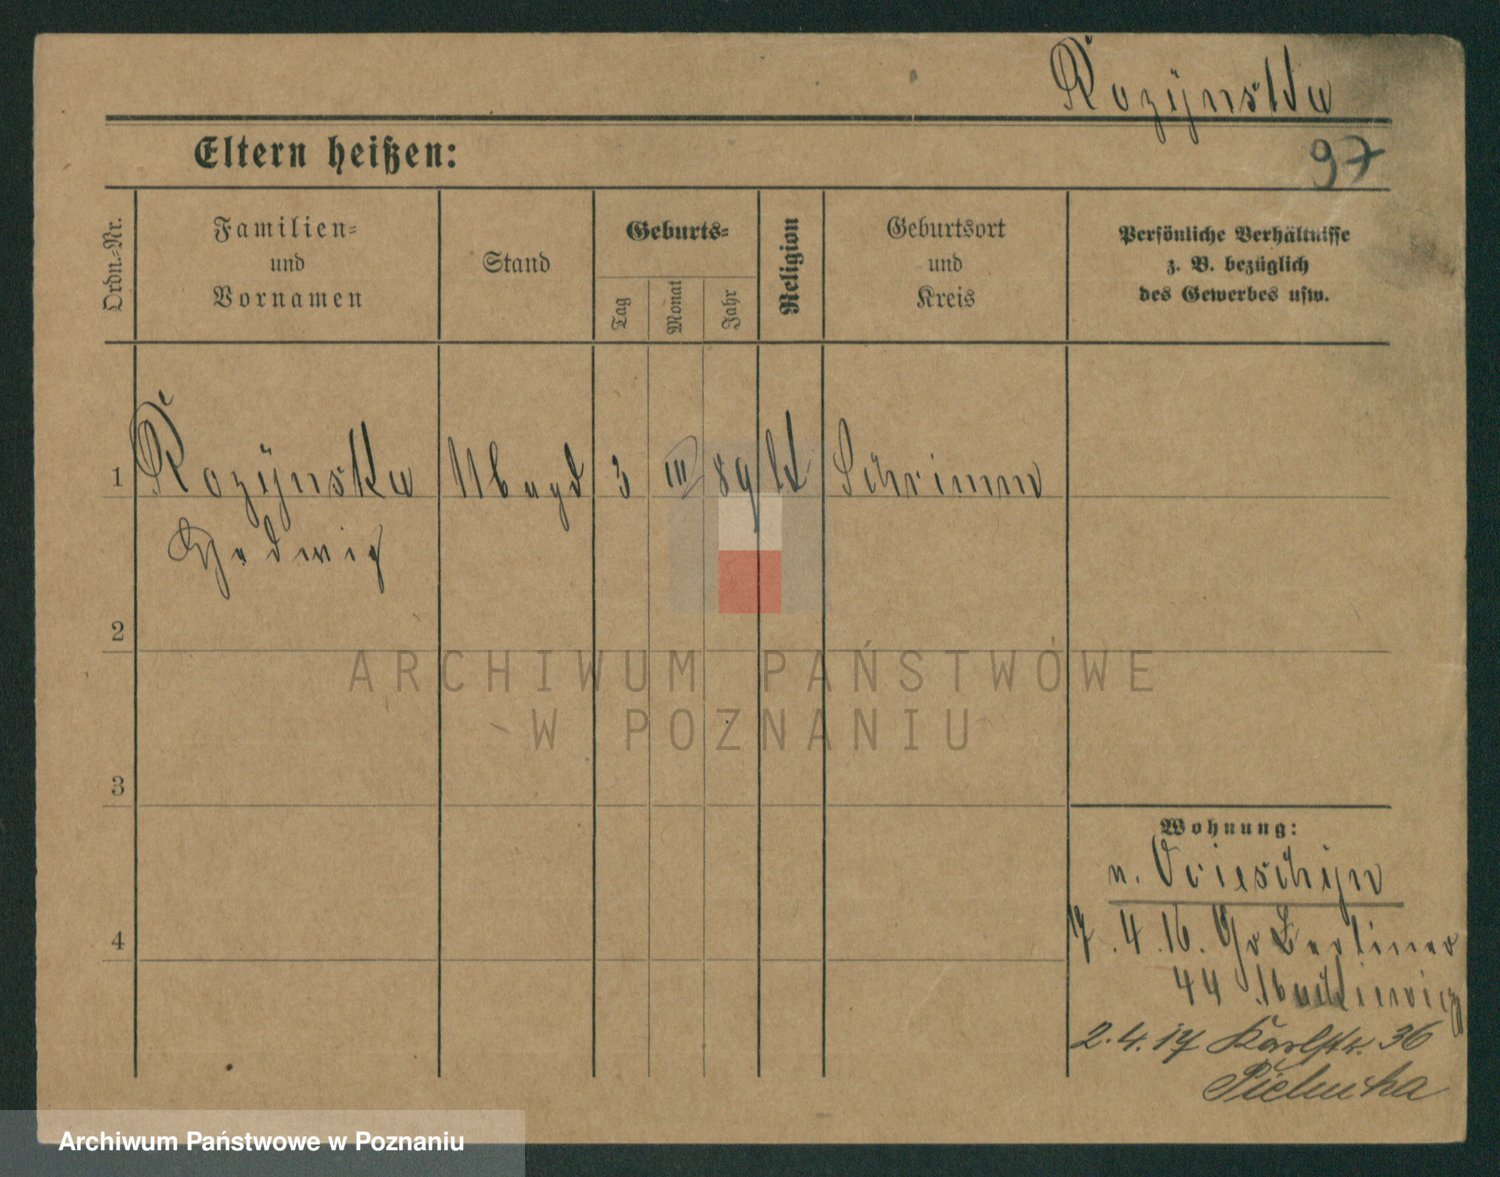 Rozynska
97
Eltern heißen:
Ordn.-Nr.
Familien-
und
Vornamen
Stand
Geburts-
Tag
Monat
Jahr
Religion
Geburtsort
und
Kreis
Persönliche Verhältnisse
z. B. bezüglich
des Gewerbes usw.
1 Rozynska Magd 3 III 89 kt Schrimm
Hedwig
2
3
4
Wohnung:
n.
17.4.16. Gr Berliner
44 Mackiewicz
2.4.17 Karlstr. 36
ARCHIWUM PAŃSTWOWE
W POZNANIU
Archiwum Państwowe w Poznaniu